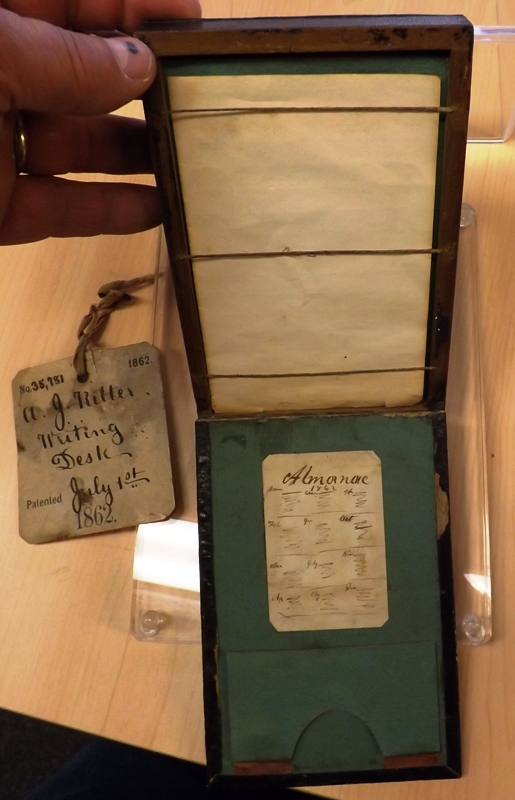 No. 35,751 1862.
A. J. Ritter.
Writing
Desk
Patented July 1st
1862.
Almanac
1862
Oct